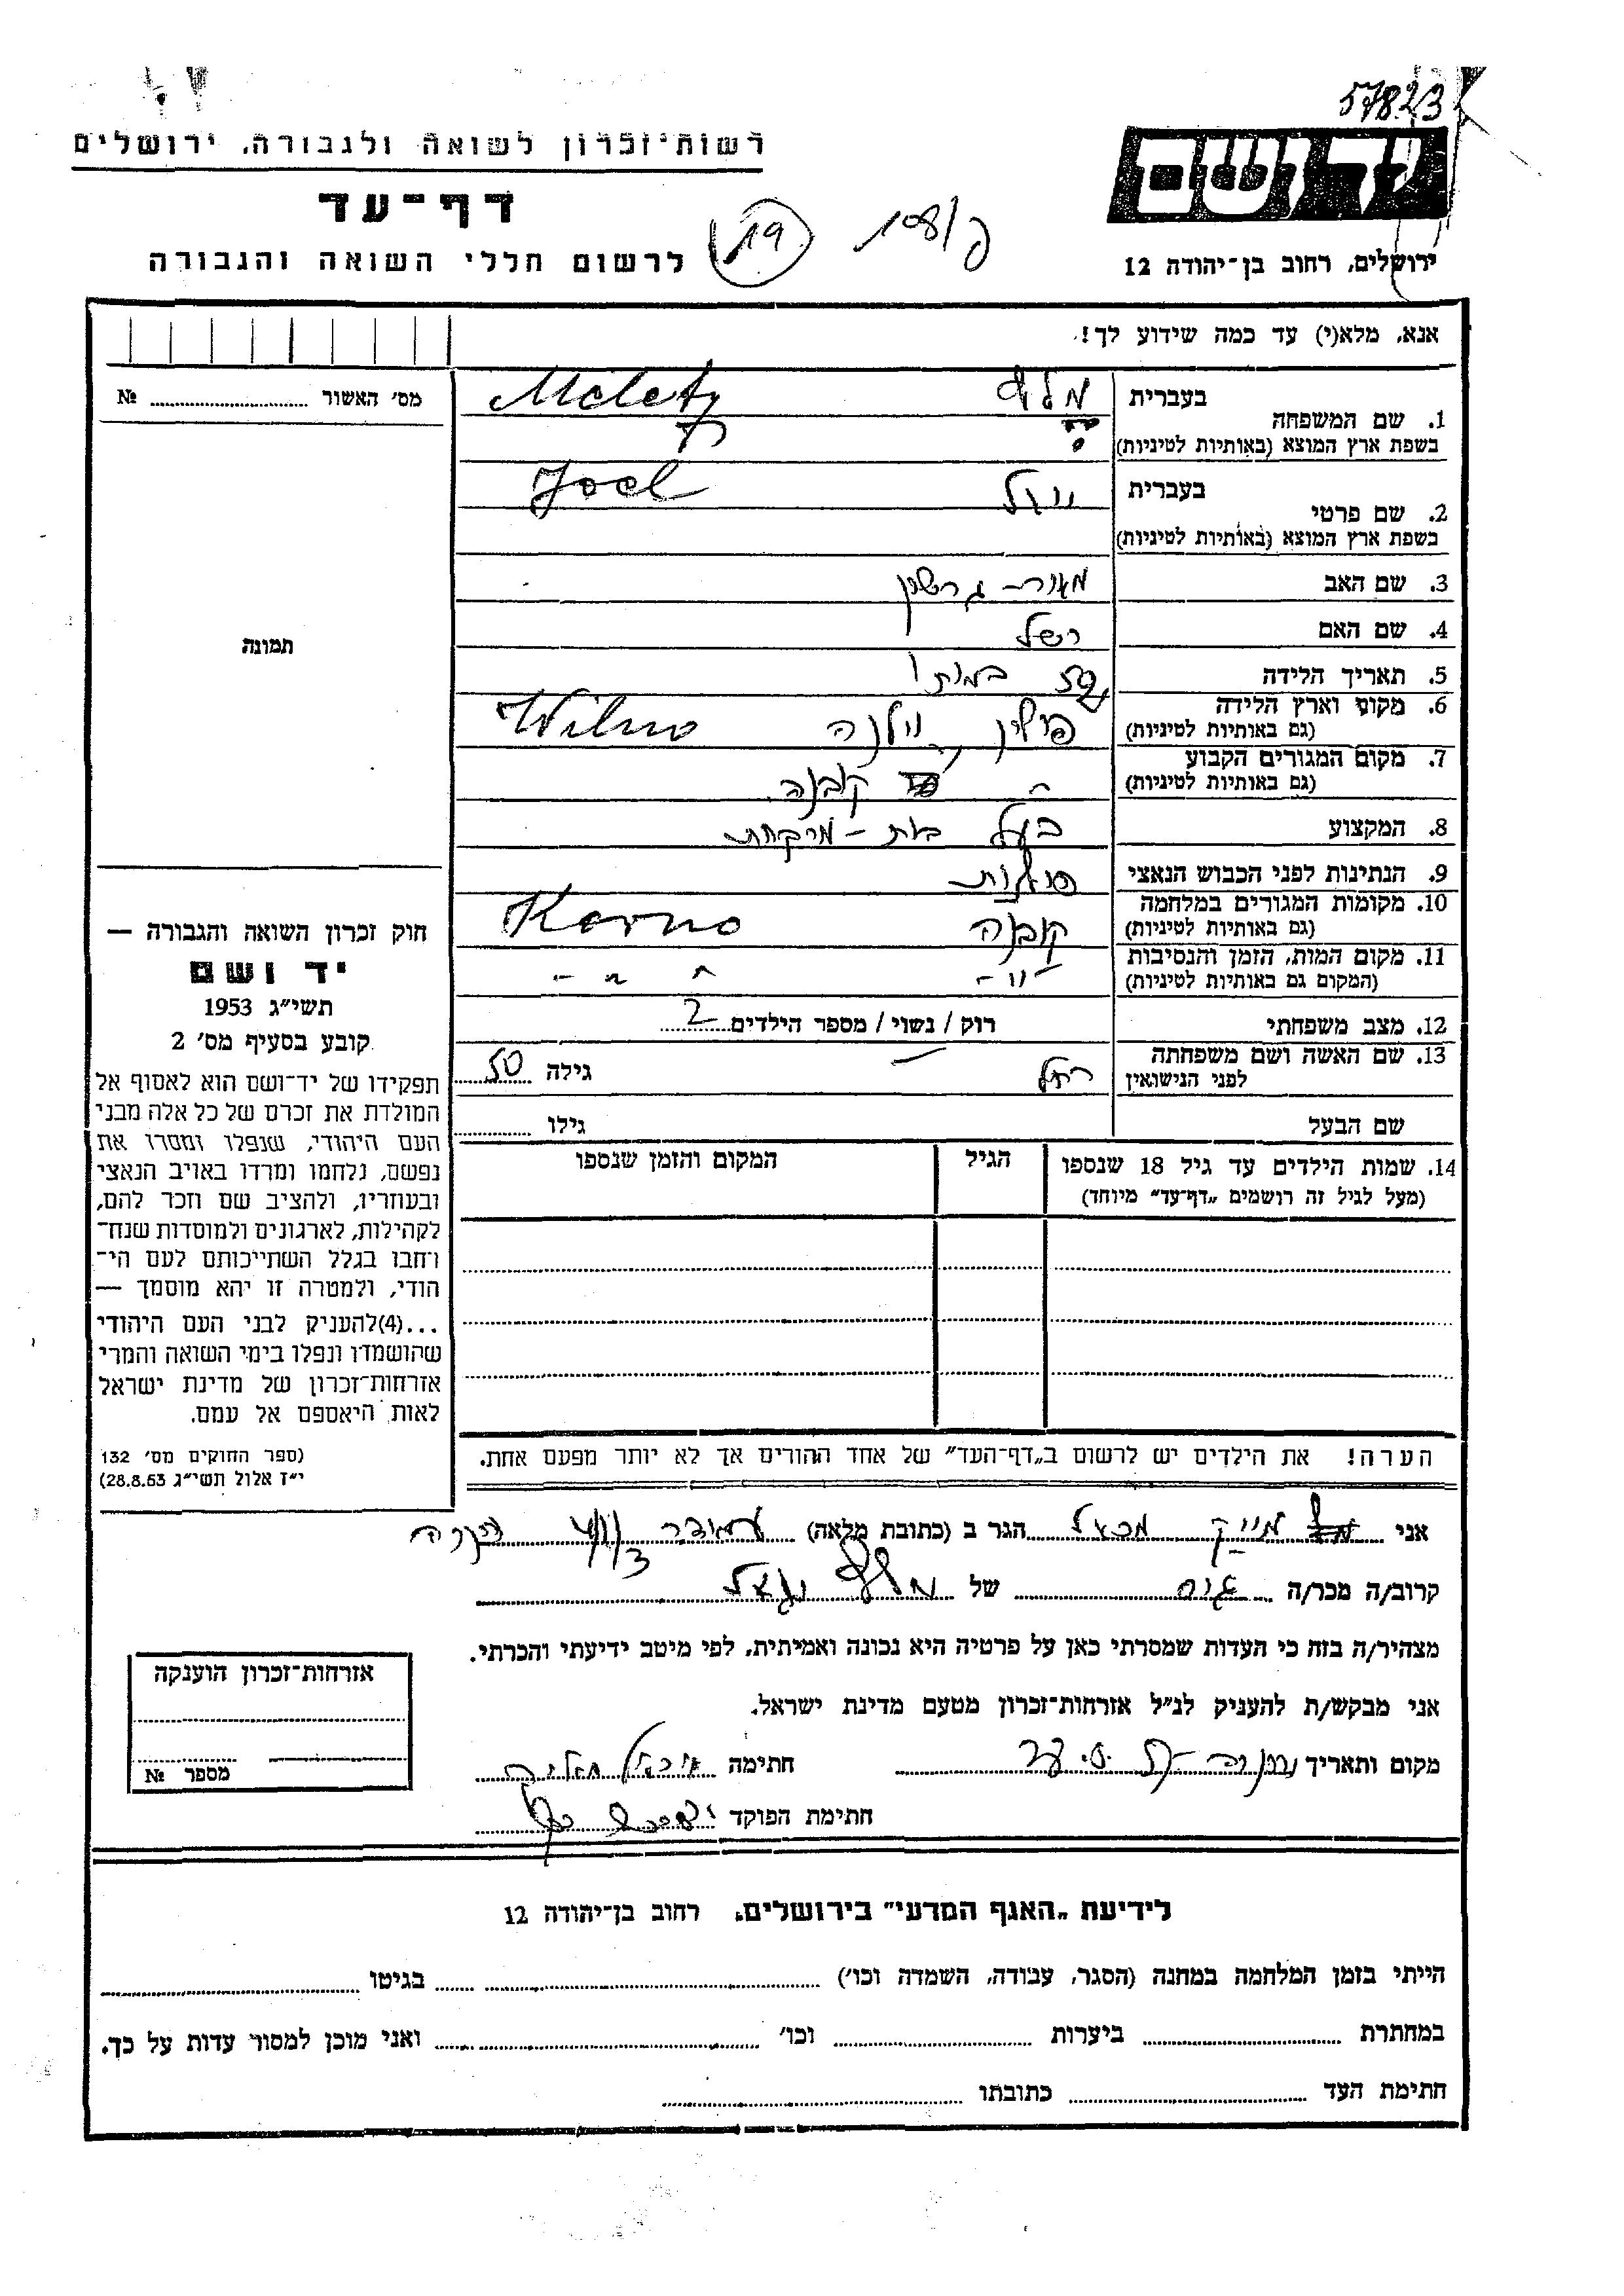 57823
רשות־זכרון לשואה ולגבורה, ירושלים
יד ושם
דף־עד
19
לרשום חללי השואה והגבורה
ירושלים, רחוב בן־יהודה 12
אנא, מלא(י) עד כמה שידוע לך!
מס׳ האשור № 
1. שם המשפחה בעברית
בשפת ארץ המוצא (באותיות לטיניות)
2. שם פרטי בעברית Joel
בשפת ארץ המוצא (באותיות לטיניות)
3. שם האב מאיר – גרשון
4. שם האם
5. תאריך הלידה 50 במותו
6. מקום וארץ הלידה פולין וילנה Wilno
(גם באותיות לטיניות)
7. מקום המגורים הקבוע קובנה
(גם באותיות לטיניות)
8. המקצוע בעל בית-מרקחת
9. הנתינות לפני הכבוש הנאצי
10. מקומות המגורים במלחמה קובנה
(גם באותיות לטיניות)
11. מקום המות, הזמן והנסיבות -"-
(המקום גם באותיות לטיניות)
12. מצב משפחתי רוק / נשוי / מספר הילדים 2
13. שם האשה ושם משפחתה רחל גילה 50
לפני הנישואין
שם הבעל גילו
14. שמות הילדים עד גיל 18 שנספו הגיל המקום והזמן שנספו
(מעל לגיל זה רושמים „דף־עד" מיוחד)
הערה! את הילדים יש לרשום ב„דף־העד" של אחד ההורים אך לא יותר מפעם אחת.
תמונה
חוק זכרון השואה והגבורה —
יד ושם
תשי״ג 1953
קובע בסעיף מס׳ 2
תפקידו של יד־ושם הוא לאסוף אל
המולדת את זכרם של כל אלה מבני
העם היהודי, שנפלו ומסרו את
נפשם, נלחמו ומרדו באויב הנאצי
ובעוזריו, ולהציב שם וזכר להם,
לקהילות, לארגונים ולמוסדות שנח־
רחבו בגלל השתייכותם לעם הי־
הודי, ולמטרה זו יהא מוסמך —
...(4)להעניק לבני העם היהודי
שהושמדו ונפלו בימי השואה והמרי
אזרחות־זכרון של מדינת ישראל
לאות היאספם אל עמם.
(ספר החוקים מס׳ 132
י״ז אלול תשי״ג 28.8.53)
אני הגר ב (כתובת מלאה)
קרוב/ה מכר/ה גיס של
מצהיר/ה בזה כי העדות שמסרתי כאן על פרטיה היא נכונה ואמיתית, לפי מיטב ידיעתי והכרתי.
אני מבקש/ת להעניק לנ״ל אזרחות־זכרון מטעם מדינת ישראל.
מקום ותאריך חתימה
חתימת הפוקד
אזרחות־זכרון הוענקה
מספר №
לידיעת „האגף המדעי" בירושלים, רחוב בן־יהודה 12
הייתי בזמן המלחמה במחנה (הסגר, עבודה, השמדה וכו׳) בגיטו
במחתרת ביערות וכו׳ ואני מוכן למסור עדות על כך.
חתימת העד כתובתו